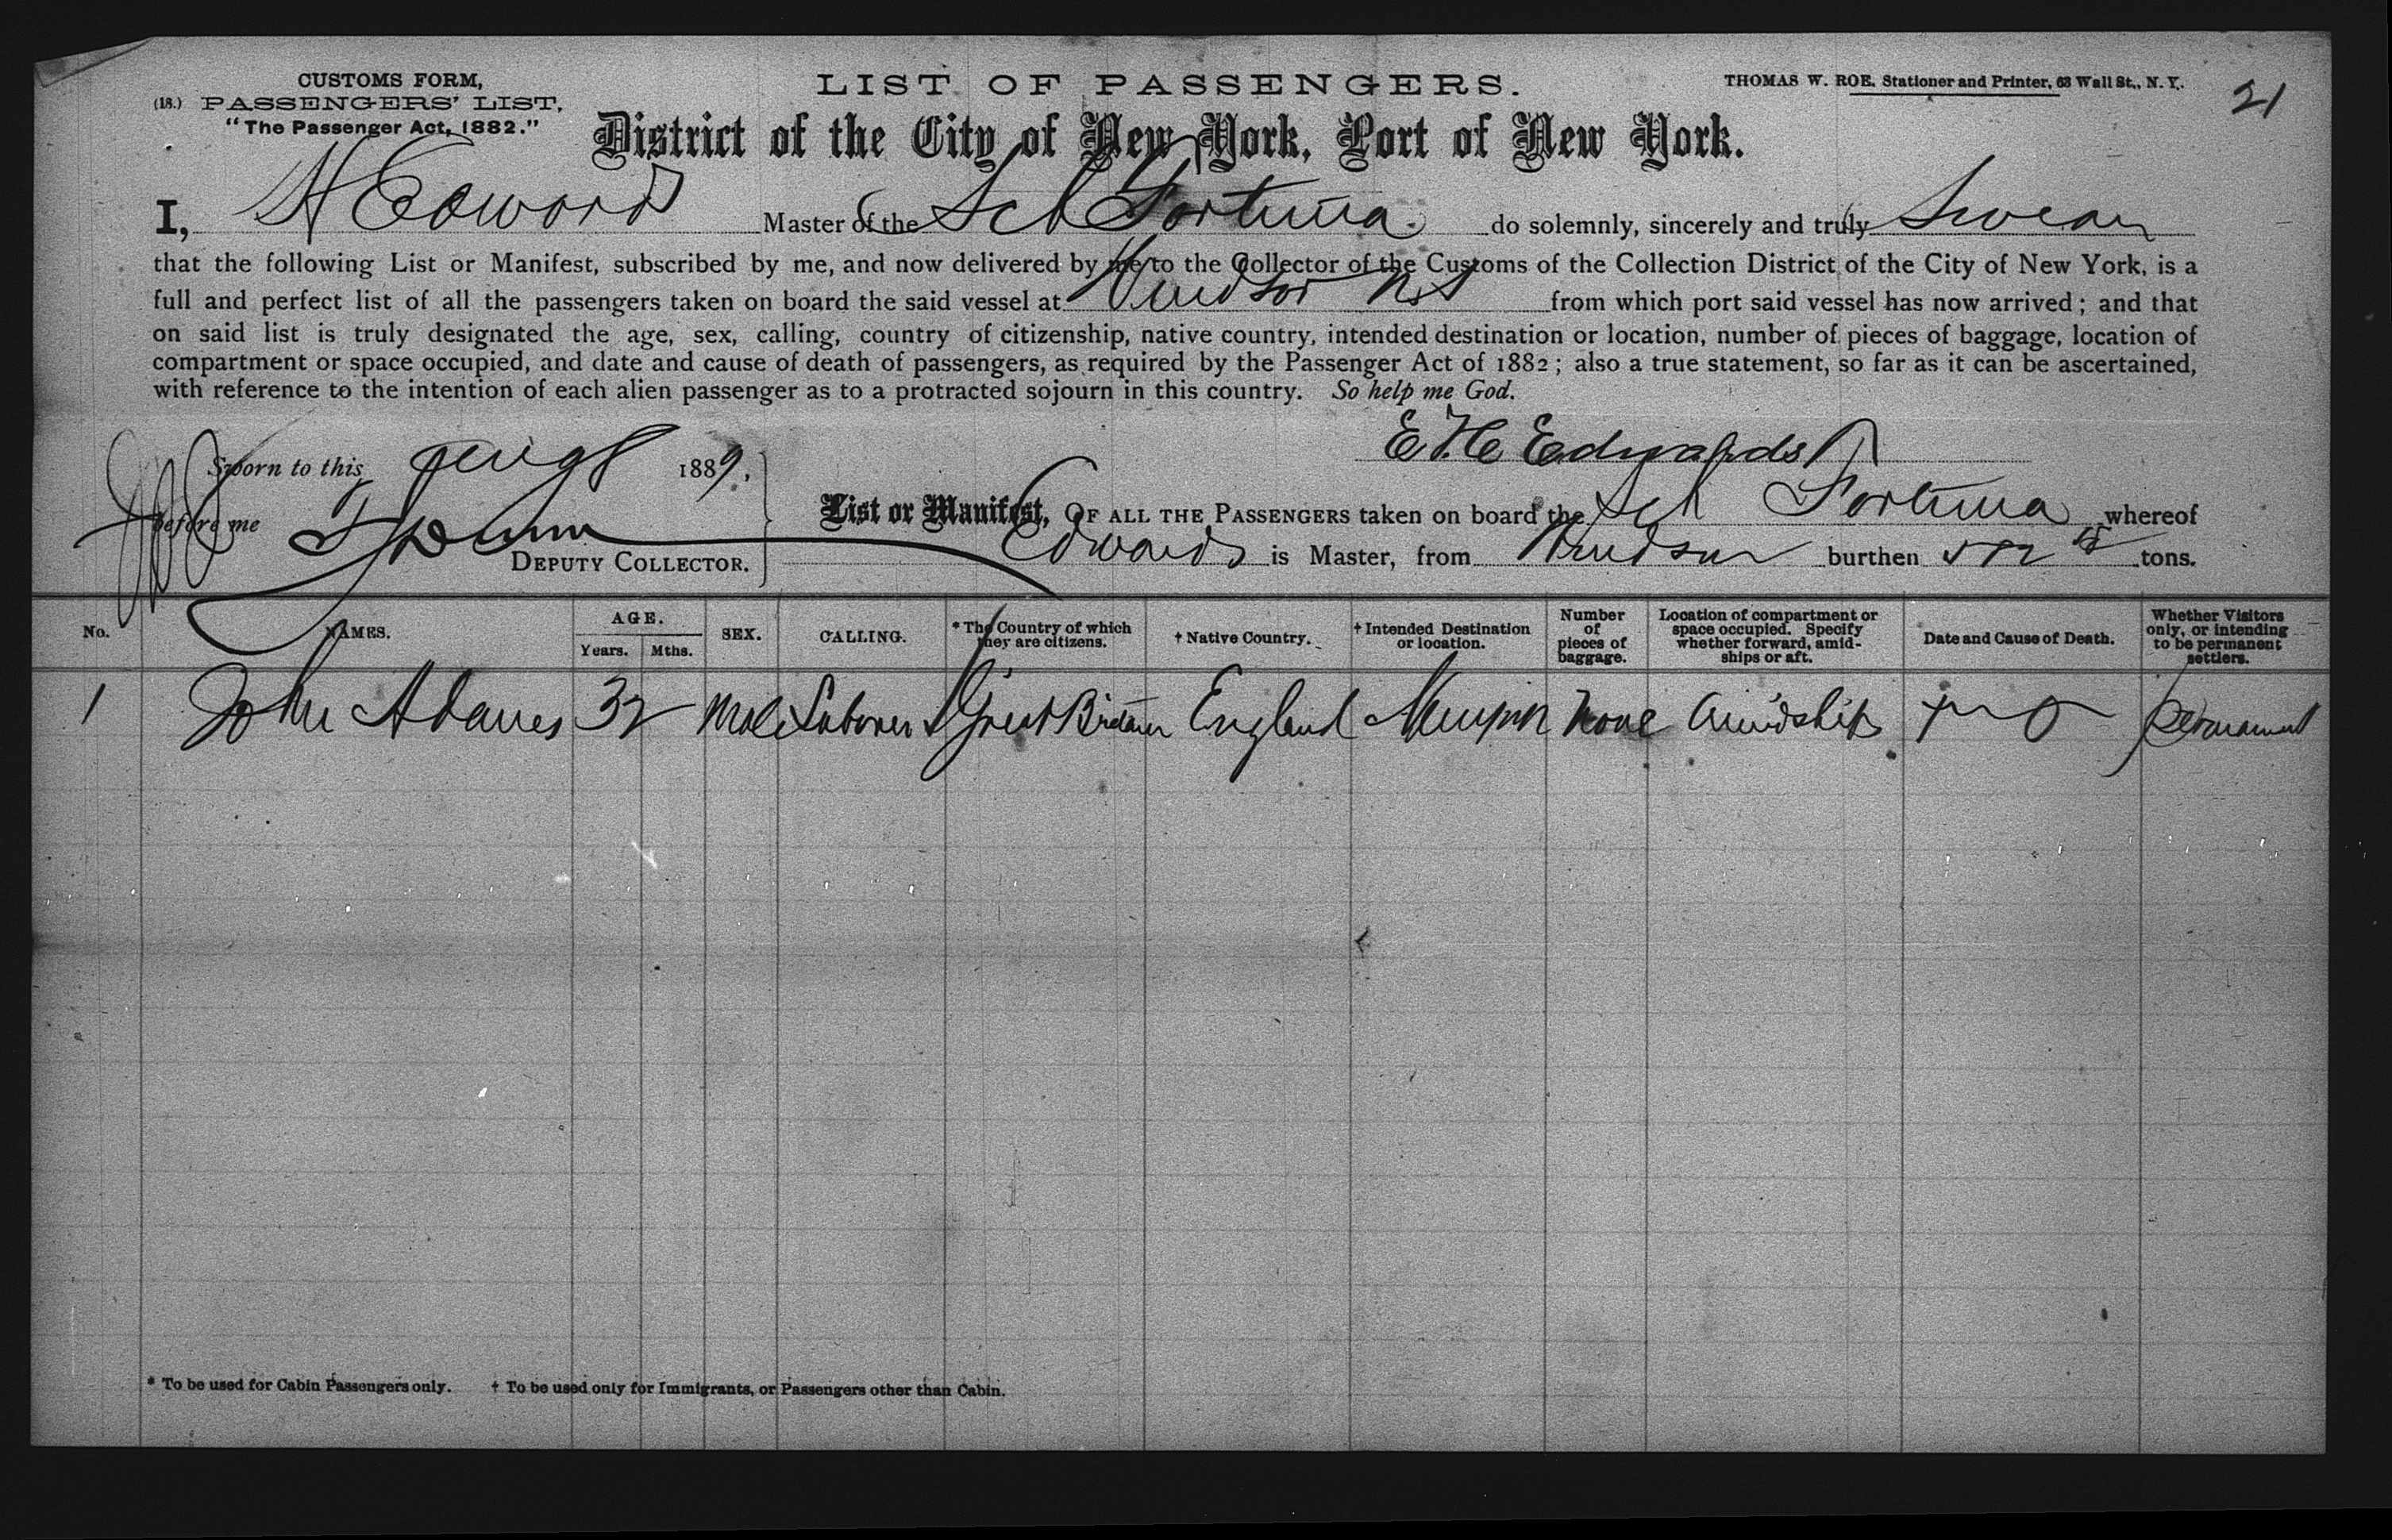 CUSTOMS FORM,
(18.) PASSENGERS' LIST,
"The Passenger Act, 1882."
LIST OF PASSENGERS.
THOMAS W. ROE, Stationer and Printer, 63 Wall St., N. Y.
21
District of the City of New York, Port of New York.
I, H Edward Master of the Sch Fortuna do solemnly, sincerely and truly Swear
that the following List or Manifest, subscribed by me, and now delivered by me to the Collector of the Customs of the Collection District of the City of New York, is a
full and perfect list of all the passengers taken on board the said vessel at Windsor N.S from which port said vessel has now arrived; and that
on said list is truly designated the age, sex, calling, country of citizenship, native country, intended destination or location, number of pieces of baggage, location of
compartment or space occupied, and date and cause of death of passengers, as required by the Passenger Act of 1882; also a true statement, so far as it can be ascertained,
with reference to the intention of each alien passenger as to a protracted sojourn in this country. So help me God.
E H Edwards
Sworn to this Aug 8 1889,
before me
DEPUTY COLLECTOR.
List or Manifest, OF ALL THE PASSENGERS taken on board the Sch Fortuna whereof
Edwards is Master, from Windsor burthen tons.
No. NAMES. AGE. Years. Mths. SEX. CALLING. * The Country of which they are citizens. † Native Country. † Intended Destination or location. Number of pieces of baggage. Location of compartment or space occupied. Specify whether forward, amidships or aft. Date and Cause of Death. Whether Visitors only, or intending to be permanent settlers.
1 John Adams 32 Male Laborer Great Britain England None Amidships Permanent
* To be used for Cabin Passengers only. † To be used only for Immigrants, or Passengers other than Cabin.